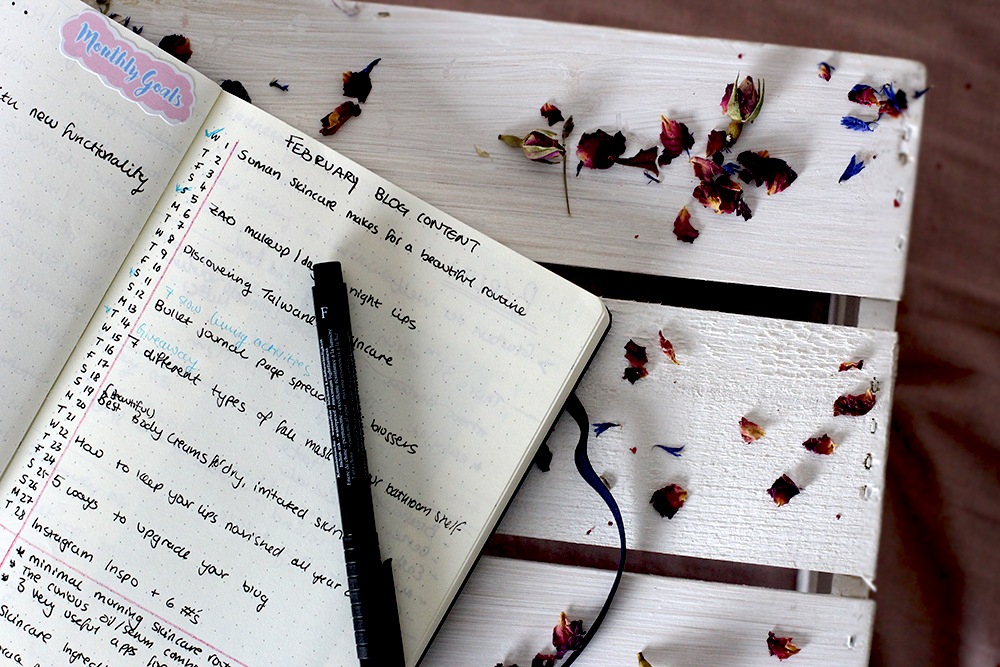 Monthly Goals
new functionality
FEBRUARY BLOG CONTENT
W 1 Soman skincare makes for a beautiful routine
T 2
F 3
S 4
S 5 ZAO makeup / day night lips
M 6
T 7
W 8 Discovering Taiwane skincare
T 9
F 10
S 11 7 slow living activities
S 12 Bullet journal page spread bloggers
M 13 Giveaway
T 14 7 different types of face mask your bathroom shelf
W 15
T 16
F 17
S 18 (Beautiful)
S 19 Best Body creams for dry, irritated skin
M 20
T 21
W 22 How to keep your lips nourished all year
T 23
F 24
S 25 5 ways to upgrade your blog
S 26
M 27
T 28 Instagram Inspo + 6 #'s
* minimal morning skincare
* The curious oil/serum
* 3 very useful apps for
Skincare